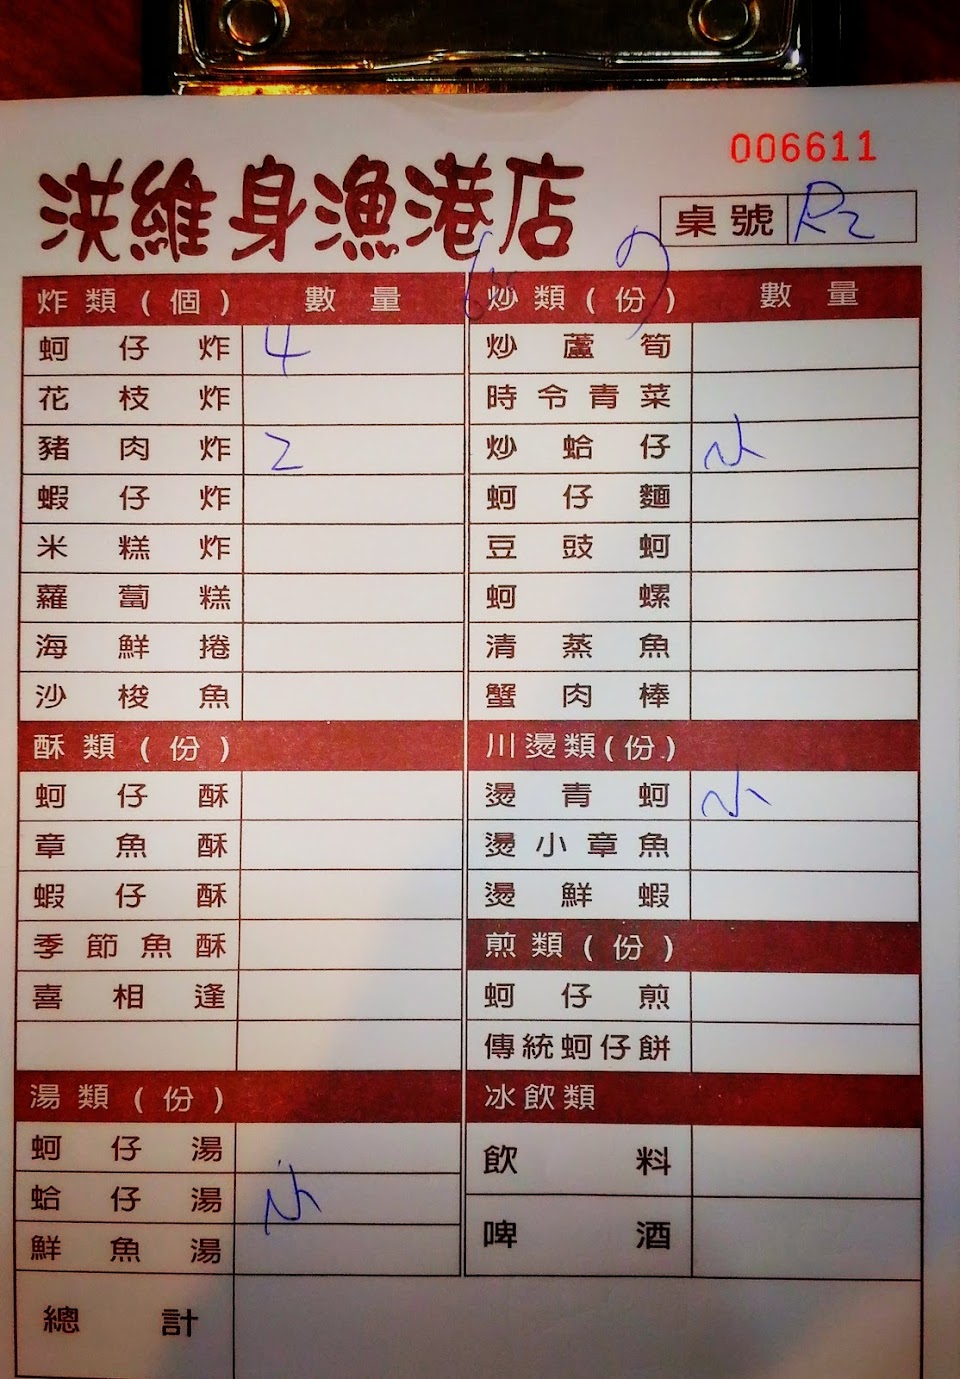 006611
洪維身漁港店
桌號 R2
炸類(個) 數量
蚵仔炸 4
花枝炸
豬肉炸 2
蝦仔炸
米糕炸
蘿蔔糕
海鮮捲
沙梭魚
酥類(份)
蚵仔酥
章魚酥
蝦仔酥
季節魚酥
喜相逢
湯類(份)
蚵仔湯
蛤仔湯 小
鮮魚湯
炒類(份) 數量
炒蘆筍
時令青菜
炒蛤仔 小
蚵仔麵
豆豉蚵
蚵螺
清蒸魚
蟹肉棒
川燙類(份)
燙青蚵 小
燙小章魚
燙鮮蝦
煎類(份)
蚵仔煎
傳統蚵仔餅
冰飲類
飲料
啤酒
總計